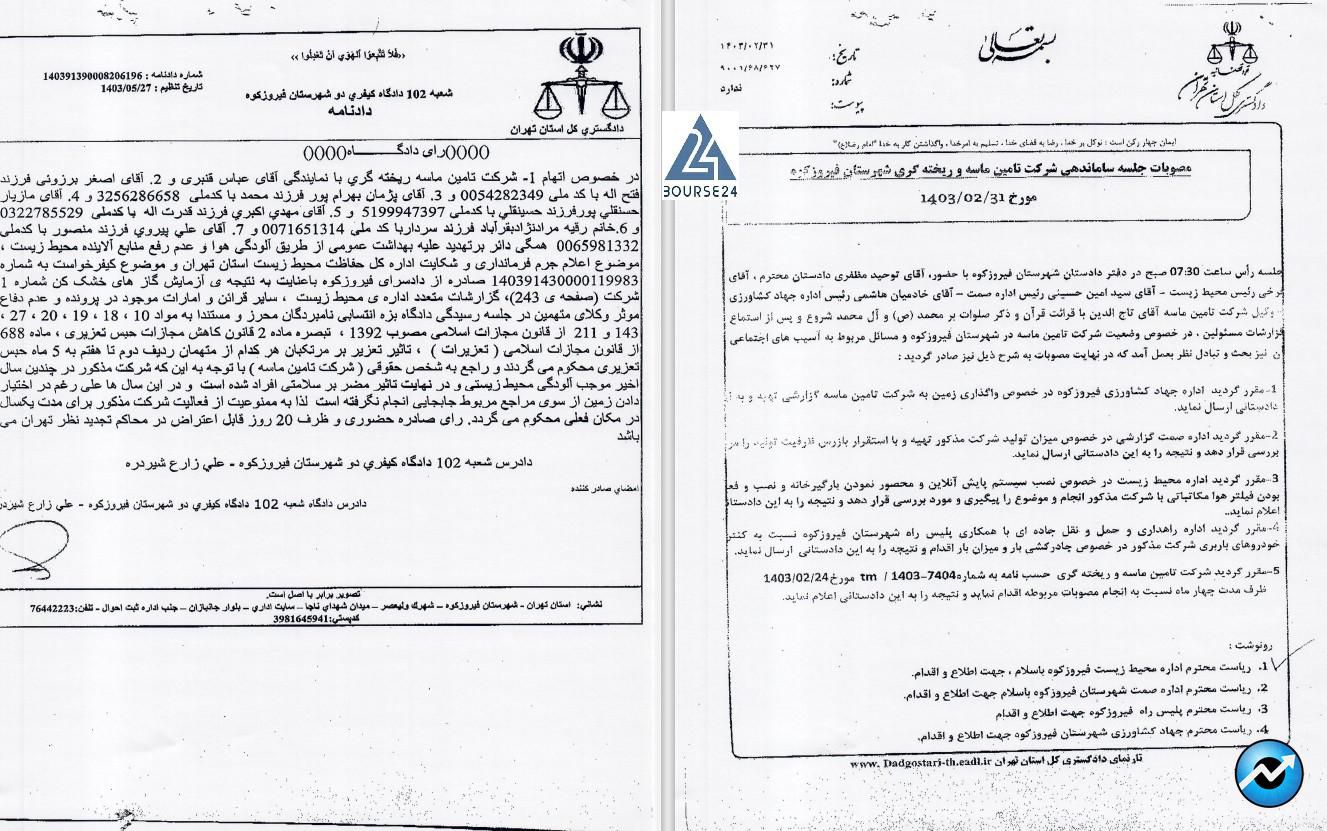 تاریخ: ۱۴۰۳/۰۲/۳۱
شماره: ۹۰۰۱/۶۸/۶۲۷
پیوست: ندارد
بسمه تعالی
قوه قضائیه
دادگستری کل استان تهران
ایمان چهار رکن است : توکل بر خدا , رضا به قضای خدا , تسلیم به امرخدا , واگذاشتن کار به خدا "امام رضا(ع)"
مصوبات جلسه ساماندهی شرکت تامین ماسه و ریخته گری شهرستان فیروزکوه
مورخ 1403/02/31
جلسه رأس ساعت 07:30 صبح در دفتر دادستان شهرستان فیروزکوه با حضور، آقای توحید مظفری دادستان محترم ، آقای
رئیس محیط زیست - آقای سید امین حسینی رئیس اداره صمت - آقای خادمیان هاشمی رئیس اداره جهاد کشاورزی
وکیل شرکت تامین ماسه آقای تاج الدین با قرائت قرآن و ذکر صلوات بر محمد (ص) و آل محمد شروع و پس از استماع
گزارشات مسئولین ، در خصوص وضعیت شرکت تامین ماسه در شهرستان فیروزکوه و مسائل مربوط به آسیب های اجتماعی
آن نیز بحث و تبادل نظر بعمل آمد که در نهایت مصوبات به شرح ذیل نیز صادر گردید :
1-مقرر گردید اداره جهاد کشاورزی فیروزکوه در خصوص واگذاری زمین به شرکت تامین ماسه گزارشی تهیه و به
دادستانی ارسال نماید.
2-مقرر گردید اداره صمت گزارشی در خصوص میزان تولید شرکت مذکور تهیه و با استقرار بازرس ظرفیت تولید را
بررسی قرار دهد و نتیجه را به این دادستانی ارسال نماید.
3-مقرر گردید اداره محیط زیست در خصوص نصب سیستم پایش آنلاین و محصور نمودن بارگیرخانه و نصب و
بودن فیلتر هوا مکاتباتی با شرکت مذکور انجام و موضوع را پیگیری و مورد بررسی قرار دهد و نتیجه را به این
اعلام نماید..
4-مقرر گردید اداره راهداری و حمل و نقل جاده ای با همکاری پلیس راه شهرستان فیروزکوه نسبت به
خودروهای باربری شرکت مذکور در خصوص چادرکشی بار و میزان بار اقدام و نتیجه را به این دادستانی ارسال نماید.
5-مقرر گردید شرکت تامین ماسه و ریخته گری حسب نامه به شماره tm / 1403-7404 مورخ 1403/02/24
ظرف مدت چهار ماه نسبت به انجام مصوبات مربوطه اقدام نماید و نتیجه را به این دادستانی اعلام نماید.
رونوشت :
1. ریاست محترم اداره محیط زیست فیروزکوه باسلام ، جهت اطلاع و اقدام.
2. ریاست محترم اداره صمت شهرستان فیروزکوه باسلام جهت اطلاع و اقدام.
3. ریاست محترم پلیس راه فیروزکوه جهت اطلاع و اقدام
4. ریاست محترم جهاد کشاورزی شهرستان فیروزکوه جهت اطلاع و اقدام.
تارنمای دادگستری کل استان تهران www. Dadgostari-th.eadl.ir
BOURSE24
‹‹فَلاَ تَتَّبِعُوا الْهَوَى أَنْ تَعْدِلُوا ››
شماره دادنامه : 140391390008206196
تاریخ تنظیم : 1403/05/27
شعبه 102 دادگاه کیفري دو شهرستان فیروزکوه
دادنامه
دادگستري کل استان تهران
0000رای دادگــــــاه0000
در خصوص اتهام 1- شرکت تامین ماسه ریخته گري با نمایندگی آقای عباس قنبری و 2. آقای اصغر برزونی فرزند
فتح اله با کد ملی 0054282349 و 3. آقای پژمان بهرام پور فرزند محمد با کدملی 3256286658 و 4. آقای مازیار
حسنقلي پورفرزند حسینقلي با کدملی 5199947397 و 5. آقای مهدي اکبري فرزند قدرت اله با کدملی 0322785529
و 6.خانم رقیه مرادنژادبقرآباد فرزند سرداربا کد ملي 0071651314 و 7. آقاي علي پیروي فرزند منصور با کدملي
0065981332 همگی دائر برتهدید علیه بهداشت عمومی از طریق آلودگی هوا و عدم رفع منابع آلاینده محیط زیست ,
موضوع اعلام جرم فرمانداری و شکایت اداره کل حفاظت محیط زیست استان تهران و موضوع کیفرخواست به شماره
140391430000119983 صادره از دادسرای فیروزکوه باعنایت به نتیجه ی آزمایش گاز های خشک کن شماره 1
شرکت (صفحه ی 243)، گزارشات متعدد اداره ی محیط زیست ، سایر قرائن و امارات موجود در پرونده و عدم دفاع
موثر وکلای متهمین در جلسه رسیدگی دادگاه بزه انتسابی نامبردگان محرز و مستندا به مواد 10 ، 18 ، 19 ، 20 ، 27 ،
143 و 211 از قانون مجازات اسلامی مصوب 1392 ، تبصره ماده 2 قانون کاهش مجازات حبس تعزیری ، ماده 688
از قانون مجازات اسلامی ( تعزیرات ) ، تاثیر تعزیر بر مرتکبان هر کدام از متهمان ردیف دوم تا هفتم به 5 ماه حبس
تعزیری محکوم می گردند و راجع به شخص حقوقی ( شرکت تامین ماسه ) با توجه به این که شرکت مذکور در چندین سال
اخیر موجب آلودگی محیط زیستی و در نهایت تاثیر مضر بر سلامتی افراد شده است و در این سال ها علی رغم در اختیار
دادن زمین از سوی مراجع مربوط جابجایی انجام نگرفته است لذا به ممنوعیت از فعالیت شرکت مذکور برای مدت یکسال
در مکان فعلی محکوم می گردد. رای صادره حضوری و ظرف 20 روز قابل اعتراض در محاکم تجدید نظر تهران می
باشد
دادرس شعبه 102 دادگاه کیفري دو شهرستان فیروزکوه - علي زارع شیردره
امضاي صادر کننده
دادرس دادگاه شعبه 102 دادگاه کیفري دو شهرستان فیروزکوه - علي زارع شیردره
تصویر برابر با اصل است.
نشانی: استان تهران - شهرستان فیروزکوه – شهرك ولیعصر – میدان شهداي ناجا – سایت اداري – بلوار جانبازان – جنب اداره ثبت احوال – تلفن:76442223
کدپستی:3981645941